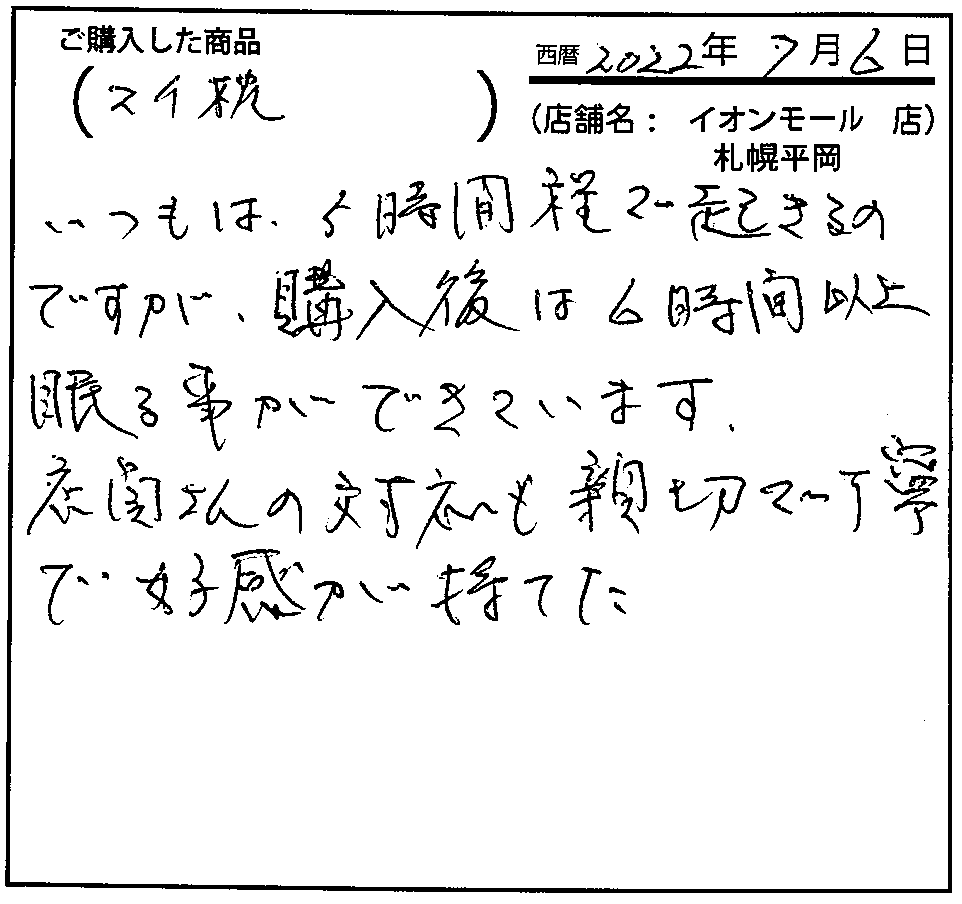 ご購入した商品
西暦 2022年 7月6日
(マイ枕)
(店舗名： イオンモール 店)
札幌平岡
いつもは、5時間程で起きるの
ですが、購入後は6時間以上
眠る事ができています。
店員さんの対応も親切で丁寧
で好感が持てた